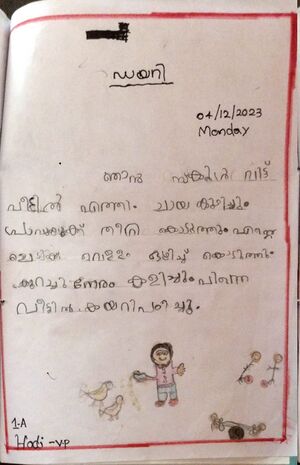 ഡയറി
04/12/2023
Monday
ഞാൻ സ്കൂൾ വിട്ട്
വീട്ടിൽ എത്തി. ചായ കുടിച്ചു.
പ്രാവുകൾക്ക് തീറ്റ കൊടുത്തു.
വെള്ളം ഒഴിച്ച് കൊടുത്തു.
കുറച്ചു നേരം കളിച്ചു. പിന്നെ
വീട്ടിൽ കയറി പഠിച്ചു.
1-A
Hadi -v.p